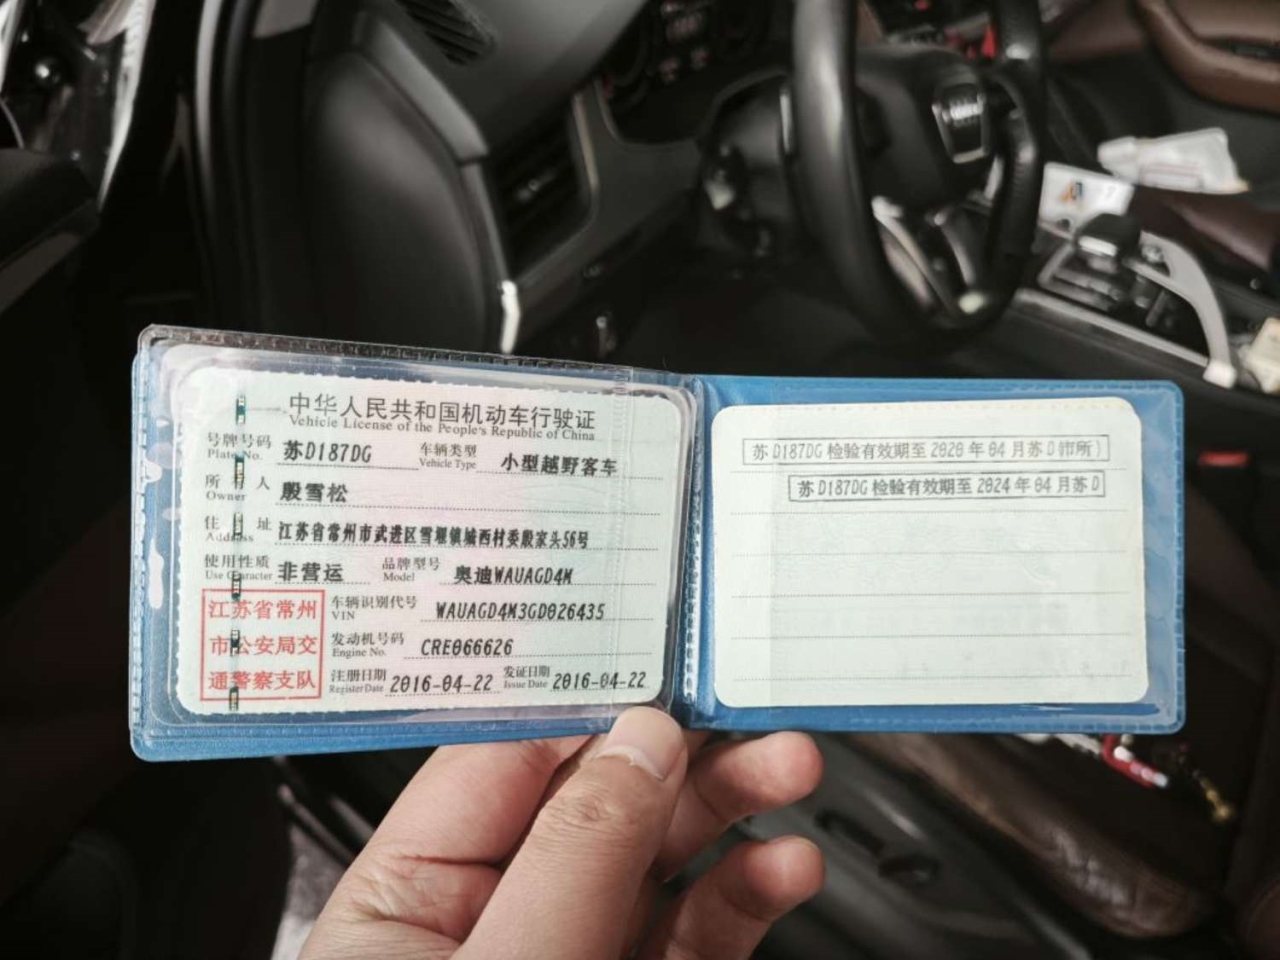 中华人民共和国机动车行驶证
Vehicle License of the People's Republic of China
号牌号码 苏D187DG 车辆类型 小型越野客车
Plate No. Vehicle Type
所有人 殷雪松
Owner
住址 江苏省常州市武进区雪堰镇城西村委殷家头56号
Address
使用性质 非营运 品牌型号 奥迪WAUAGD4M
Use Character Model
江苏省常州
市公安局交
通警察支队
车辆识别代号 WAUAGD4M3GD026435
VIN
发动机号码 CRE066626
Engine No.
注册日期 2016-04-22 发证日期 2016-04-22
Register Date Issue Date
苏D187DG 检验有效期至 2020 年 04 月苏 D (市所)
苏 D187DG 检验有效期至 2024 年 04 月苏 D